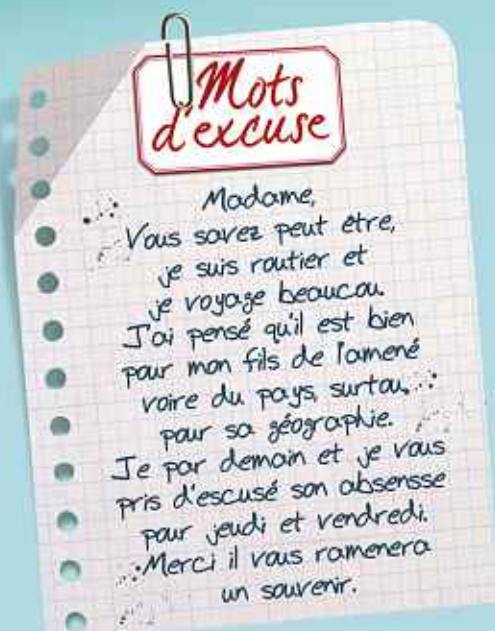 Mots
d'excuse
Madame,
Vous savez peut etre,
je suis routier et
je voyage beaucou.
J'ai pensé qu'il est bien
pour mon fils de l'amené
voire du pays, surtou,
pour sa géographie.
Je par demain et je vous
pris d'escusé son absensse
pour jeudi et vendredi.
Merci il vous ramenera
un souvenir.